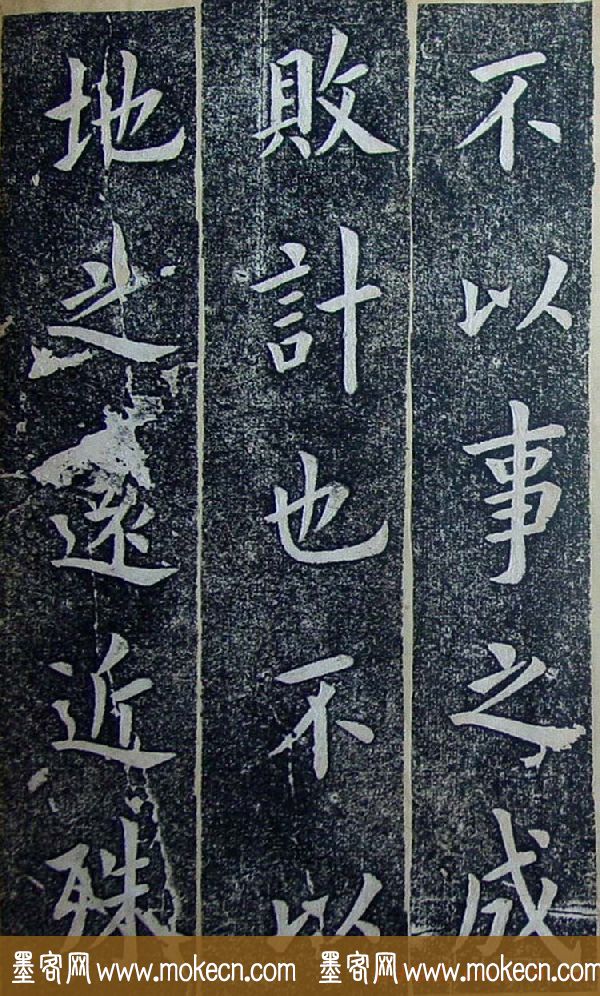 不以事之成
敗計也不以
地之遠近殊
墨客网 www.mokecn.com 墨客网 www.mokecn.com